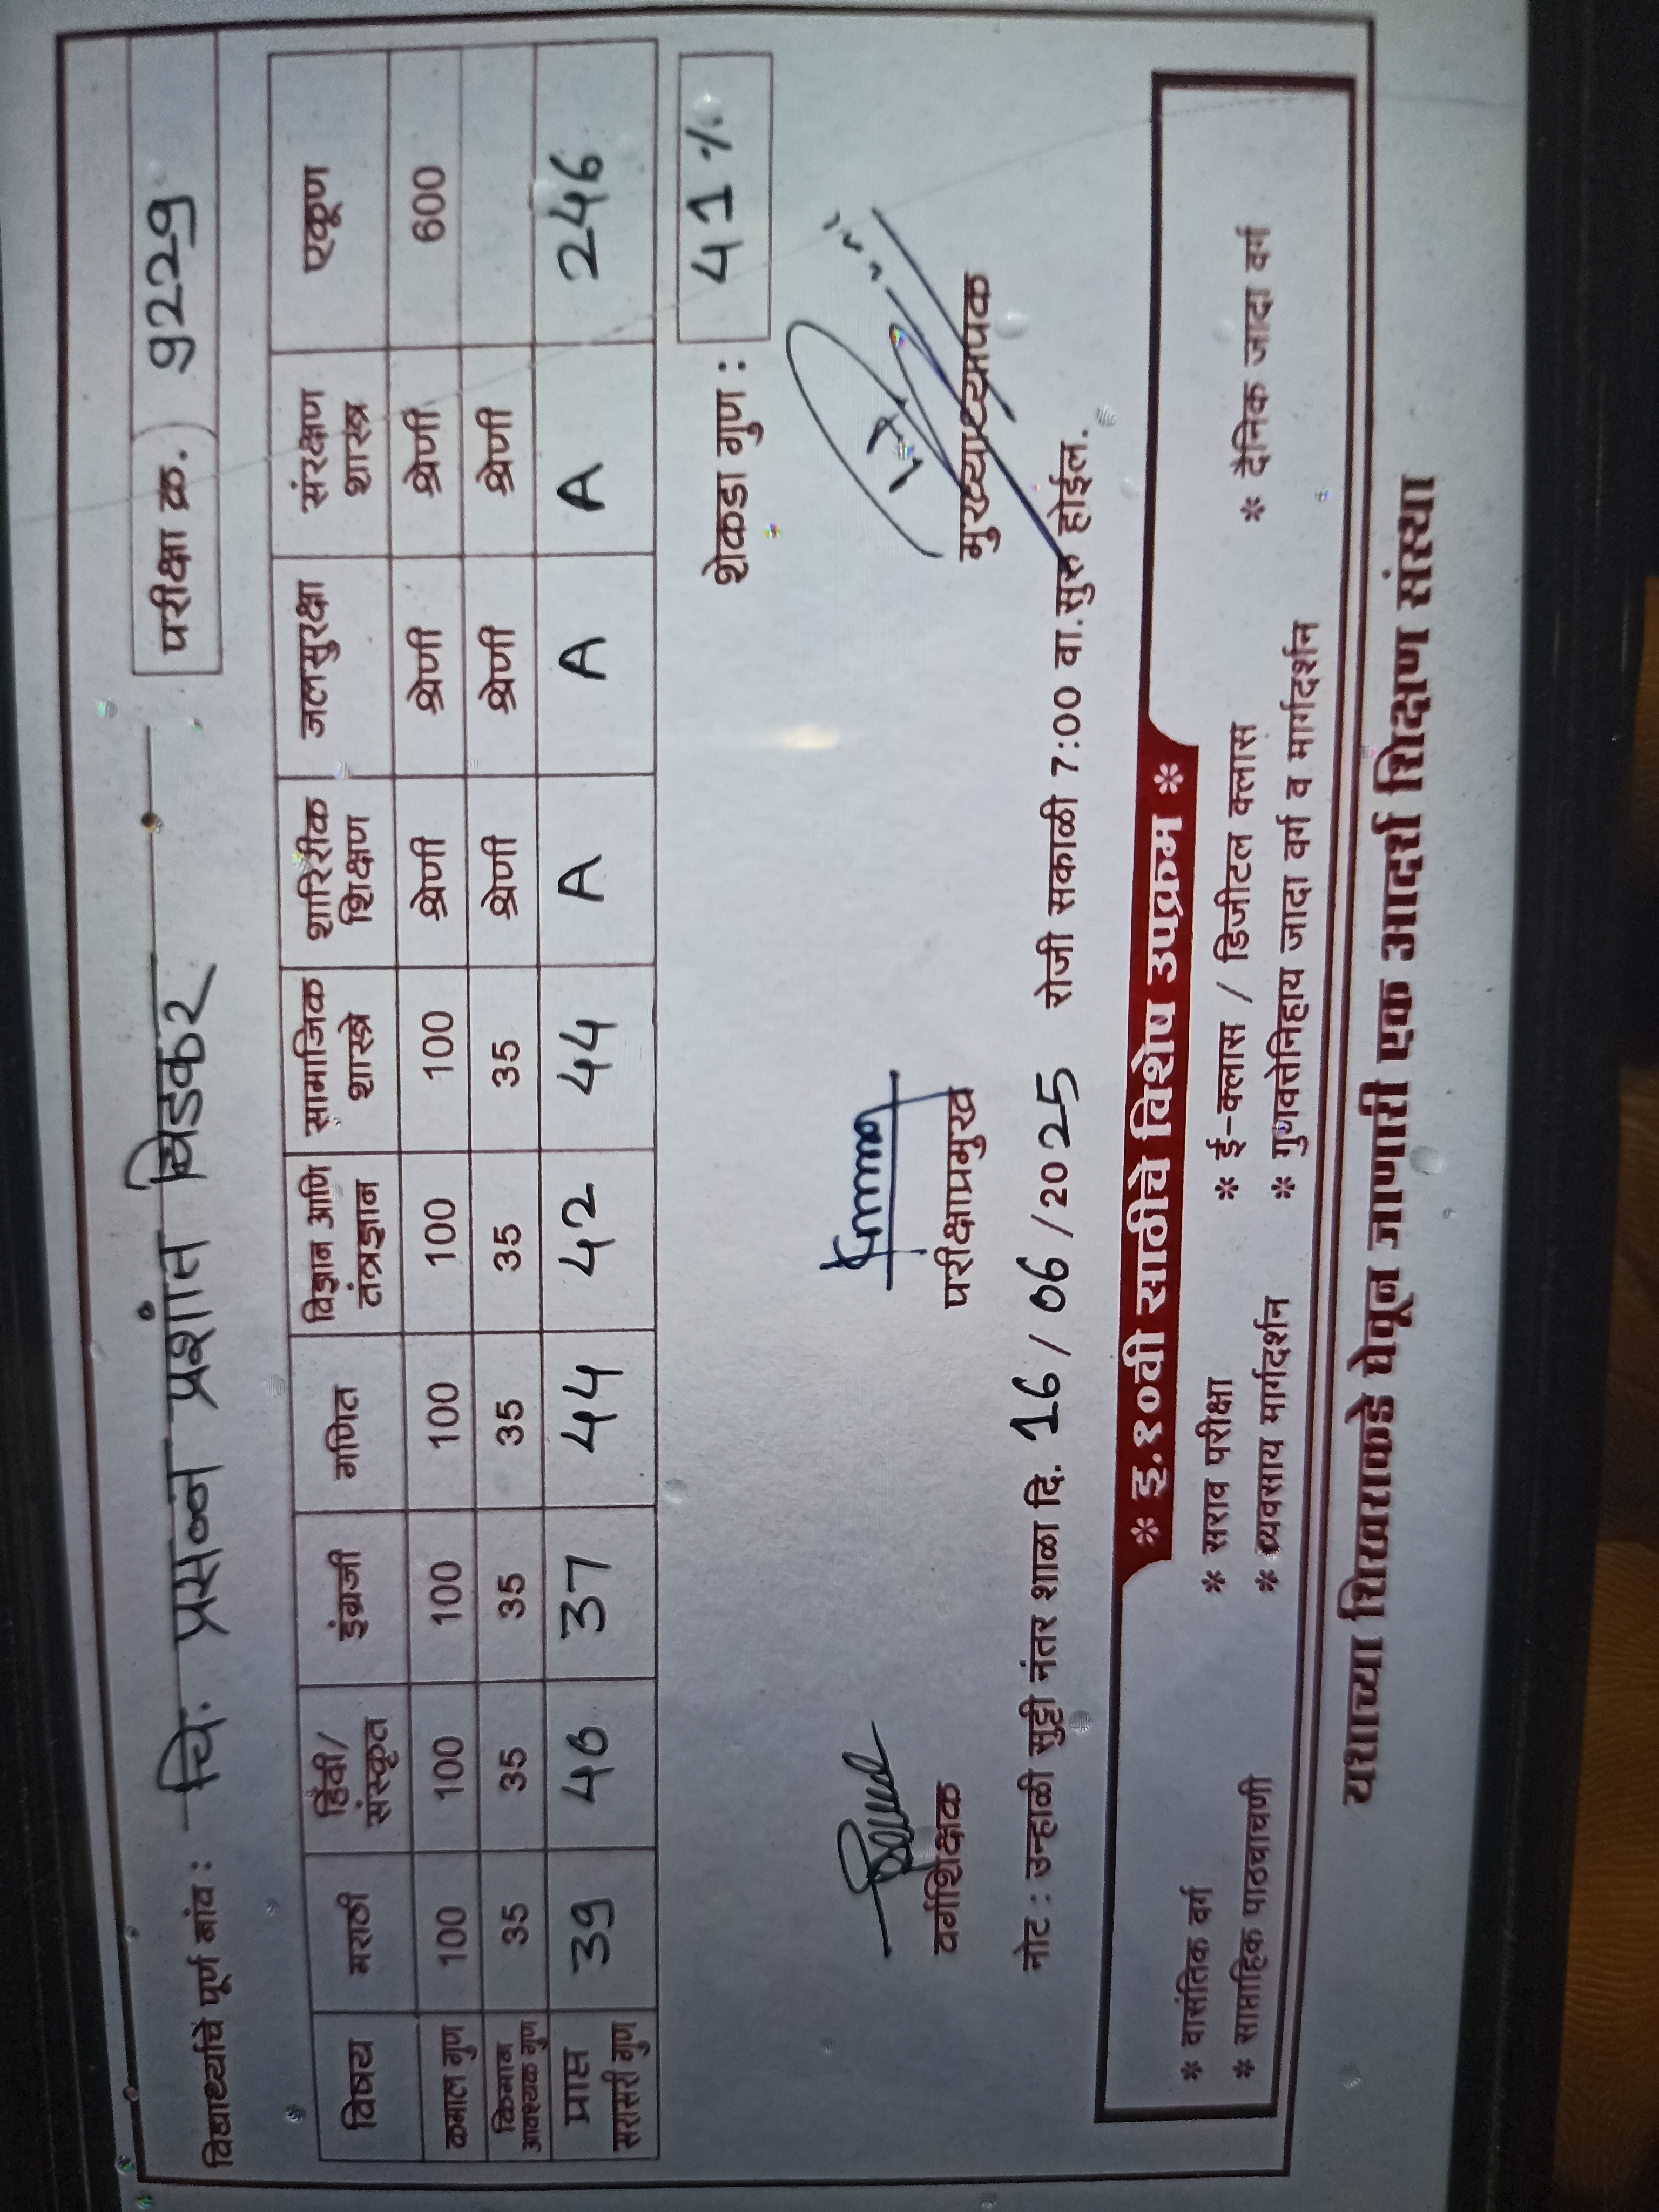 विद्यार्थ्याचे पूर्ण नांव : चि. प्रसन्न प्रशांत बिडकर परीक्षा क्र. 9229
विषय मराठी हिंदी/ संस्कृत इंग्रजी गणित विज्ञान आणि तंत्रज्ञान सामाजिक शास्त्रे शारिरीक शिक्षण जलसुरक्षा संरक्षण शास्त्र एकूण
कमाल गुण 100 100 100 100 100 100 श्रेणी श्रेणी श्रेणी 600
किमान आवश्यक गुण 35 35 35 35 35 35 श्रेणी श्रेणी श्रेणी
प्राप्त सरासरी गुण 39 40 37 44 42 44 A A A 246
शेकडा गुण : 41 %
वर्गशिक्षक परीक्षाप्रमुख मुख्याध्यापक
नोट : उन्हाळी सुट्टी नंतर शाळा दि. 16 / 06 / 2025 रोजी सकाळी 7:00 वा.सुरु होईल.
* इ.१०वी साठीचे विशेष उपक्रम *
* वासंतिक वर्ग * सराव परीक्षा * ई-क्लास / डिजीटल क्लास * दैनिक जादा वर्ग
* सामाहिक पाठयाचणी * व्यवसाय मार्गदर्शन * गुणवत्तेनिहाय जादा वर्ग व मार्गदर्शन
यशाच्या शिखराकडे घेवूल जाणारी एक आदर्श शिक्षण संस्था